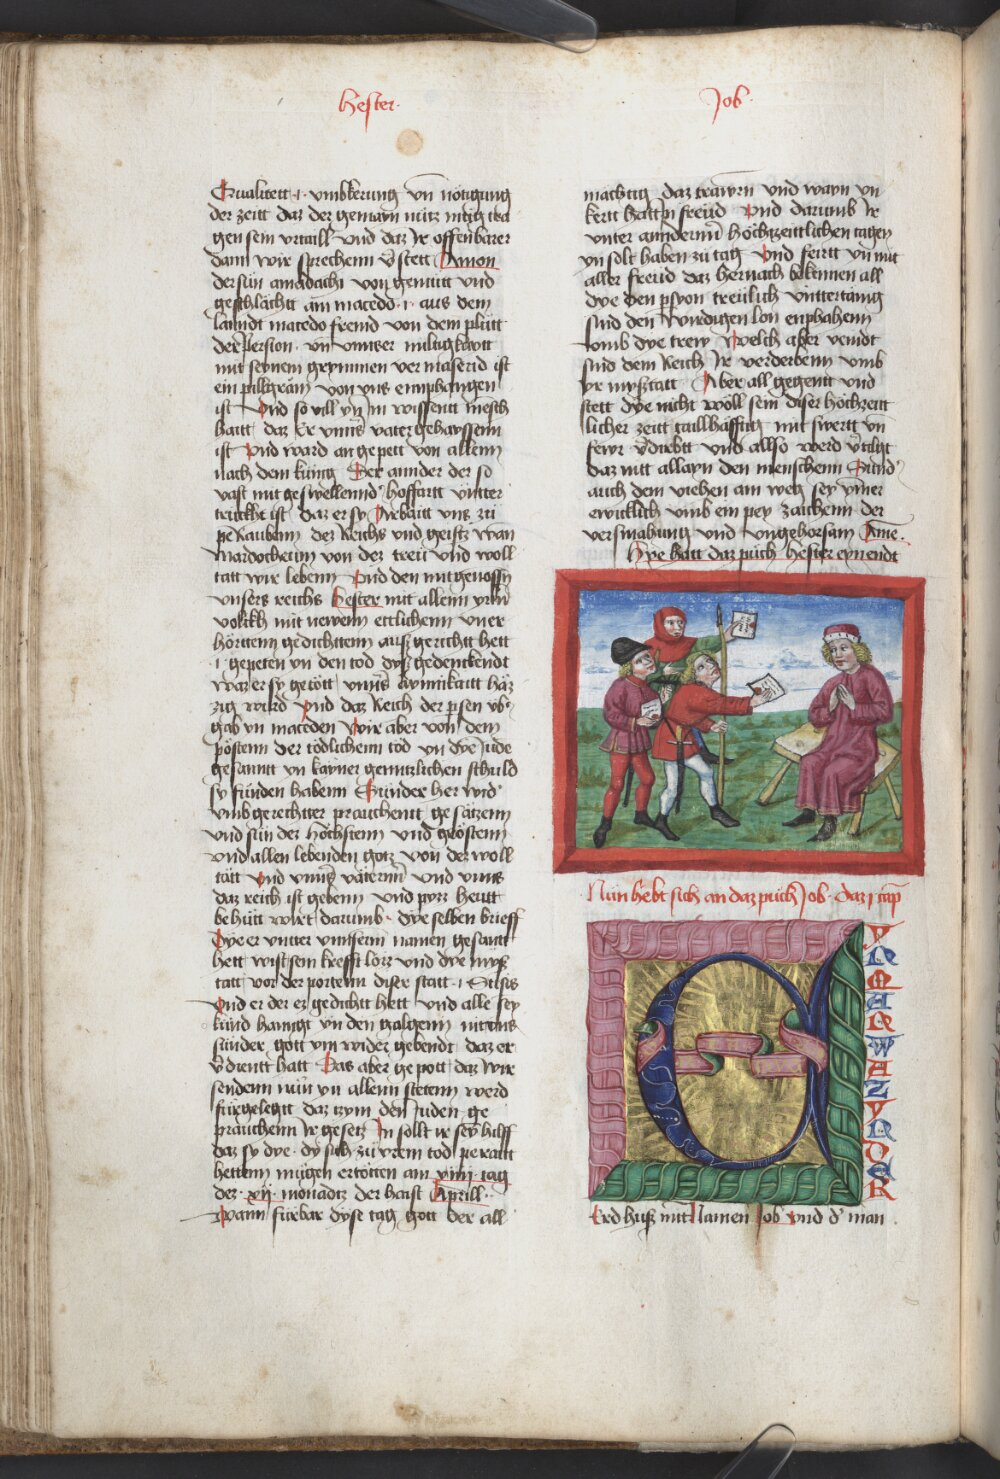 Hester.
Job.
Qualitett .i. vmbkerung vn nottigung
der zeitt daz der gemain nütz
gen sein vrtaill Vnd daz Ir offenbarer
dann wir sprechenn stett Amon
der sün amadachi von gemütt vnd
geschlächtt am macedo .i. aus dem
lanndt macedo fremd von dem plütt
der persion . vn vnnser miltigkaytt
mit seynem grymmen vermaserid ist
ein pillgram von vns emnphangen
ist Vnd so vill yn im wissentt mensch
hatt daz er vnns vater gehayssenn
ist Vnd ward an gepett von allenn
nach dem künig Der annder der so
vast mit geswellennd hoffartt vntter
truckht ist daz er sy Arbaitt vns zu
peraubenn dez Reichs vnd geists wan
Mardocheum von dez treü vnd woll
tatt wir lebenn Vnd den mitgenossn
vnsers reichs Hester mit allenn yrm
volckh mit newenn ettlichenn vner
hörttenn gedichttenn aufgerichtt hett
.i. gepeten vn den tod dyss gedenckendt
waz er sy getött vnns
zig wurd Vnd daz Reich der psen
gab vn maceden Wir aber von dem
pöstenn der tödlichenn tod vn dye Jüde
gesanntt vn kayner gemürlichen schuld
sy fünden habenn Sunder her wid
vmb gerechtter prauchentt gesätzenn
vnd sün dez höchstenn vnd gröstenn
vnd allen lebenden gotz von dez woll
tätt Vnd vnns väterinn vnd vnns
daz reich ist gebenn vnd pyzz heütt
behütt wirt darumb . dye selben brieff
Dye er vntter vnnsenn namen gesantt
hett wist sein krefftlozz vnd dye
tatt vor der portenn diser statt .i. Susis
Vnd er der ez gedichtt hett vnd alle sey
künd hanngt yn den galgenn nit vns
sünder gott ym wider gebendt daz er
vdientt hatt Das aber gepott daz wir
sendenn nün yn allenn stetenn werd
fürgelegtt daz tzym den Juden ge
prauchenn Ir gesetz In sollt ir sey hilff
daz sy dye . dy sich zü yrem tod peraitt
hettenn mügen ertötten am xiiij tag
dez . xij . monadtz der haist Aprill .
Wann fürbar dyse tag gott der all
mächtig daz trawrn vnd wayn vn
kertt hatt yn freüd Vnd darumb Ir
vnter anndernn höchzeittlichen tagen
yn solt haben zu tag Vnd feirtt yn mit
aller freüd daz hernach bekennen all
dye den psyon treülich vnttertänig
sind den wirdigen lon enphahenn
vomb dye trew Welch aber veindt
sind dem Reich Ir verderbenn vmb
yr mysstatt Aber all gegentt vnd
stett dye nicht woll sein diser höchzeitt
licher zeitt taillhäfftig mit swertt vn
feür vdirbtt vnd allso werd vtilgt
daz nitt allayn den menschenn Sund
auch dem viehen am weg sey ymer
ewicklich vmb ein pey zaichenn der
versmahung vnd vngehorsam Ame .
Hye hatt daz püch Hester eyn endt
Nun hebt sich an daz püch Job . daz j cap
E YN MAN WAZ YN DER
Erd hus mit Namen Job Vnd d man .